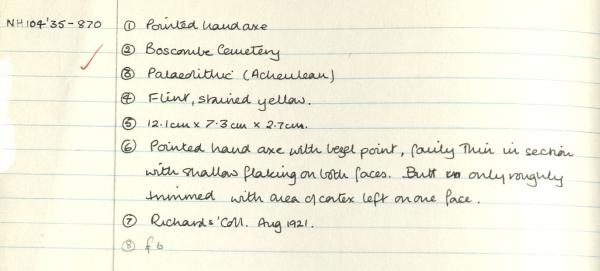 NH104'35-870 ① Pointed hand axe
② Boscombe Cemetery
③ Palaeolithic (Acheulean)
④ Flint, stained yellow.
⑤ 12.1cm x 7.3cm x 2.7cm.
⑥ Pointed hand axe with bezel point, fairly thin in section
with shallow flaking on both faces. Butt only roughly
trimmed with area of cortex left on one face.
⑦ Richards' Coll. Aug 1921.
⑧ f6